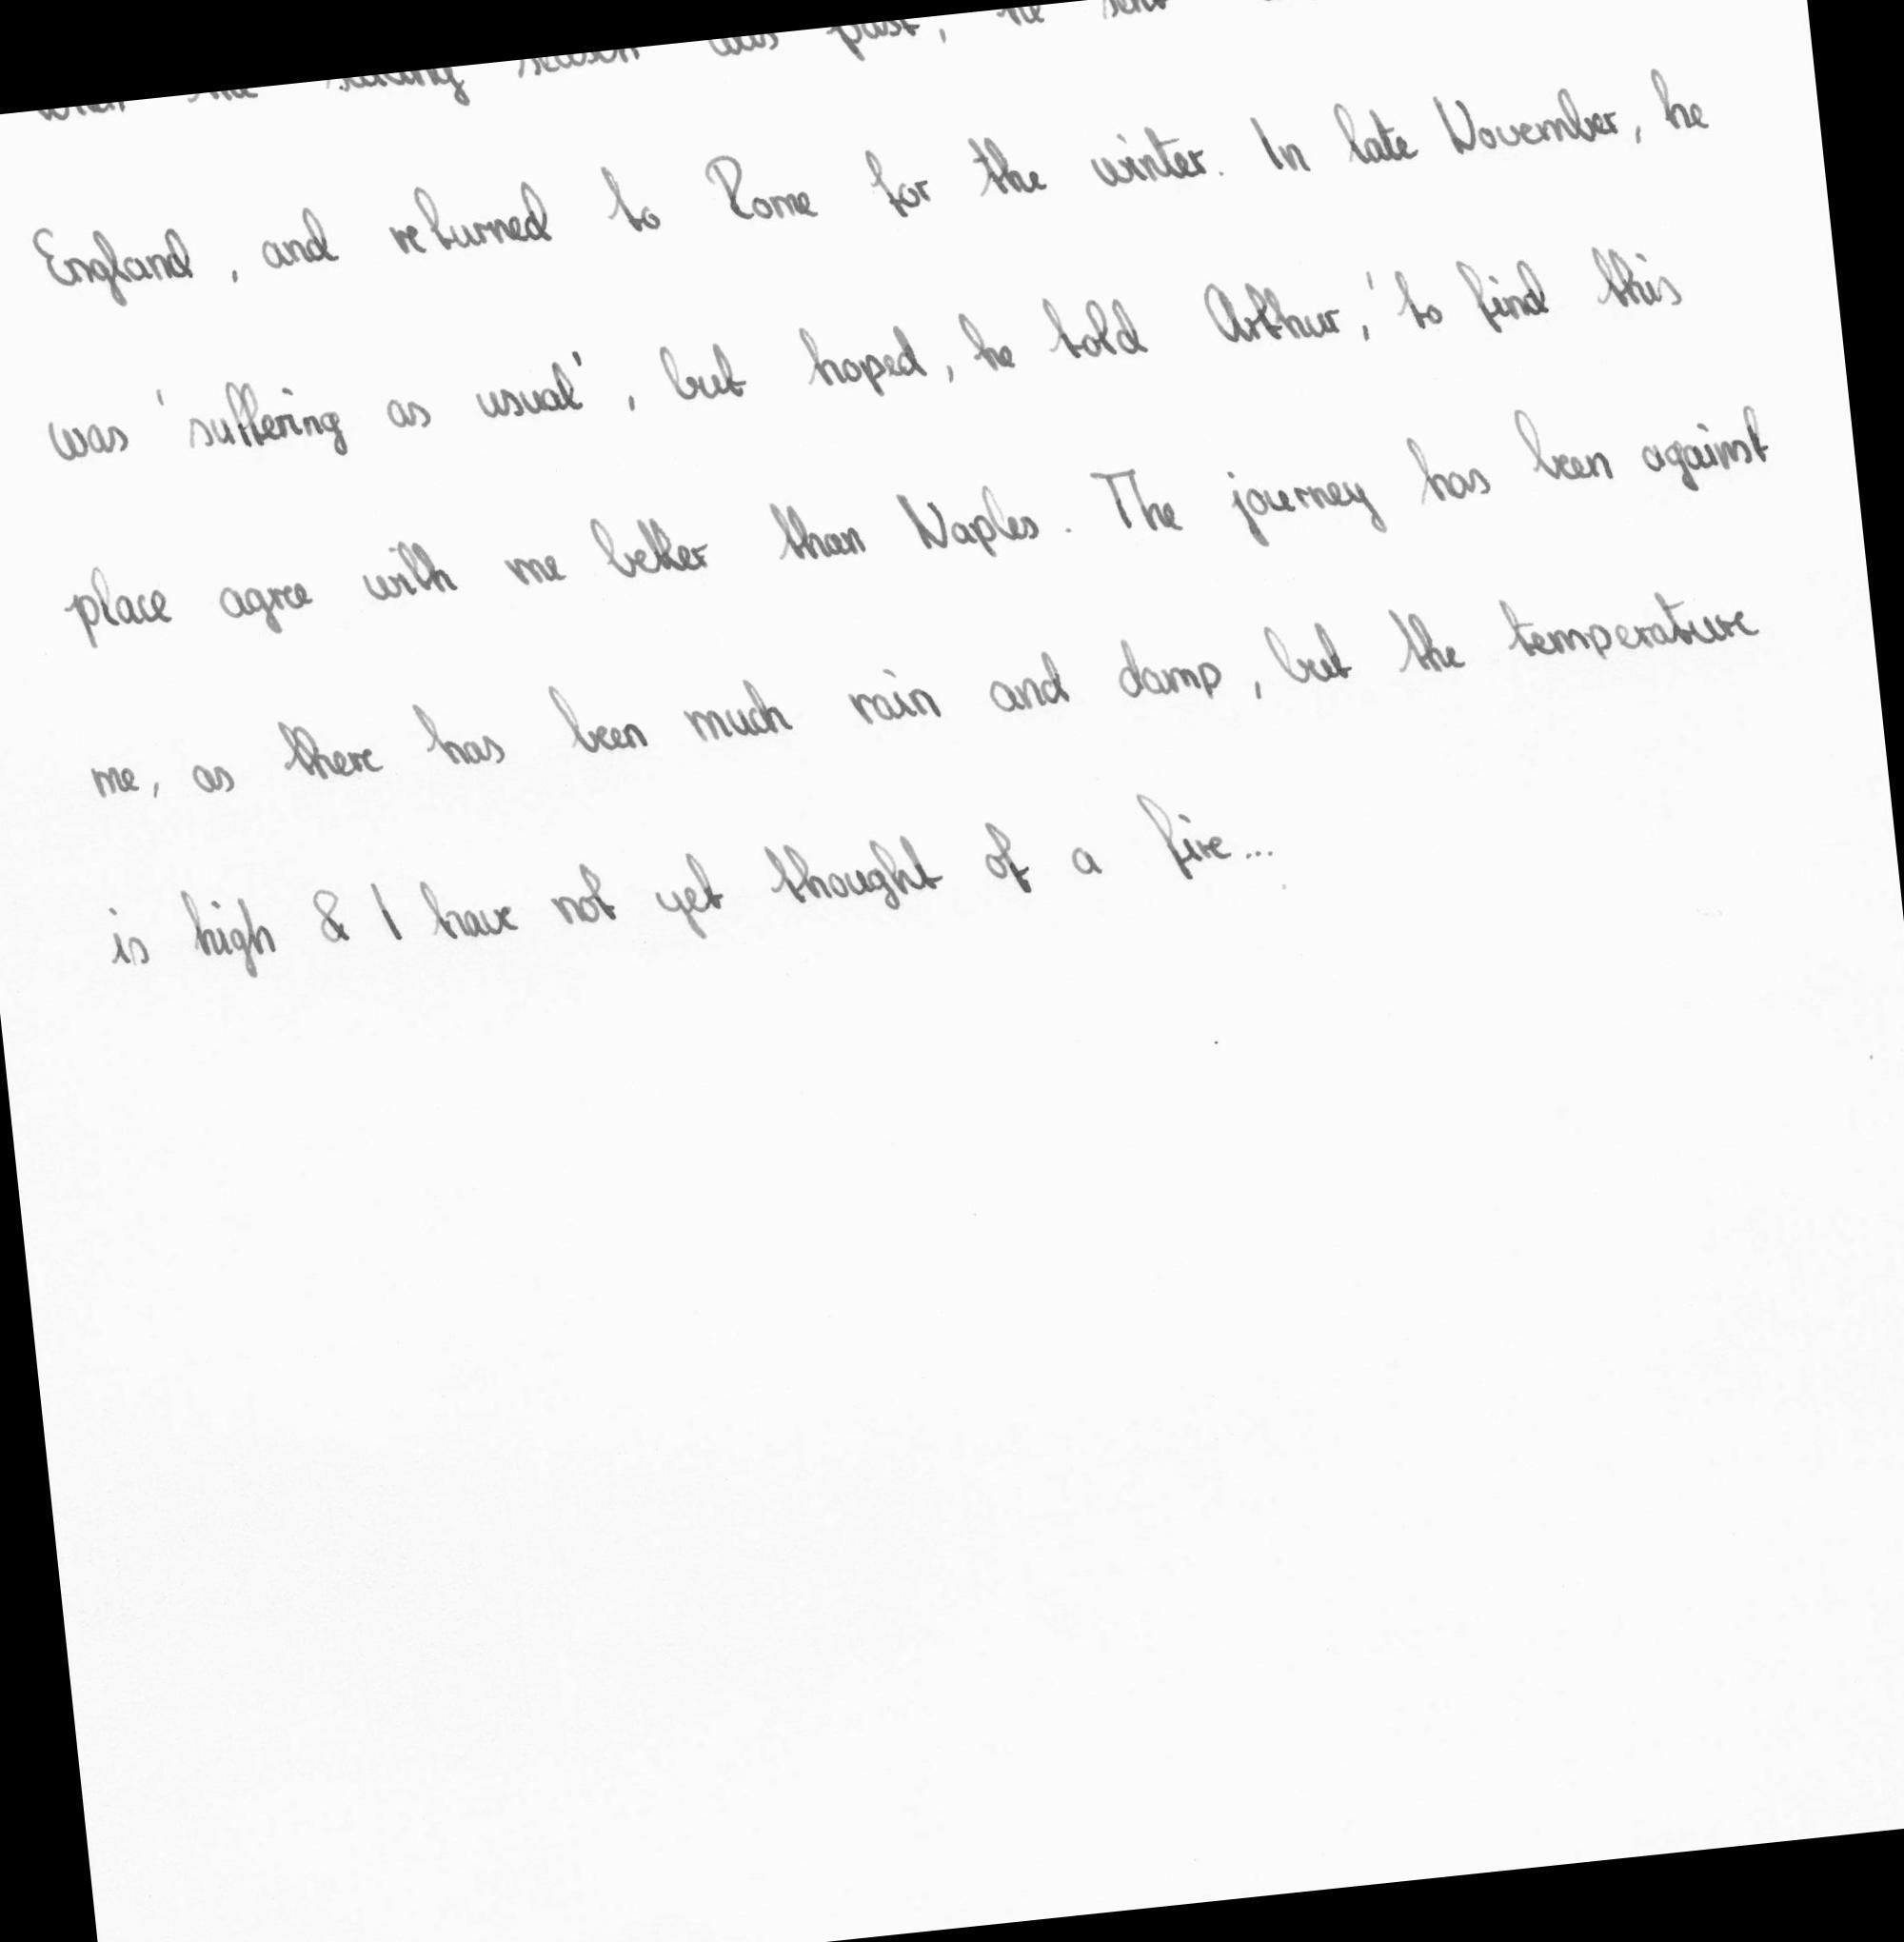 when the sailing season was past, he sent
England, and returned to Rome for the winter. In late November, he
was 'suffering as usual', but hoped, he told Arthur, 'to find this
place agree with me better than Naples. The journey has been against
me, as there has been much rain and damp, but the temperature
is high & I have not yet thought of a fire...